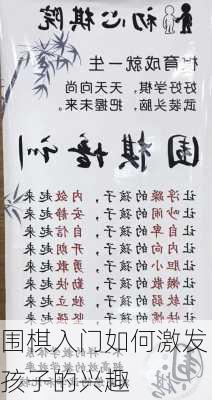 初心棋院
棋育成就一生
好好学棋 天天向尚
武装头脑 把握未来
围棋培训
让浮躁的孩子,内敛起来
让吵闹的孩子,安静起来
让自卑的孩子,自信起来
让内向的孩子,开朗起来
让胆小的孩子,勇敢起来
让的孩子,起来
让的孩子,独立起来
让的孩子,起来
围棋入门如何激发
孩子的兴趣